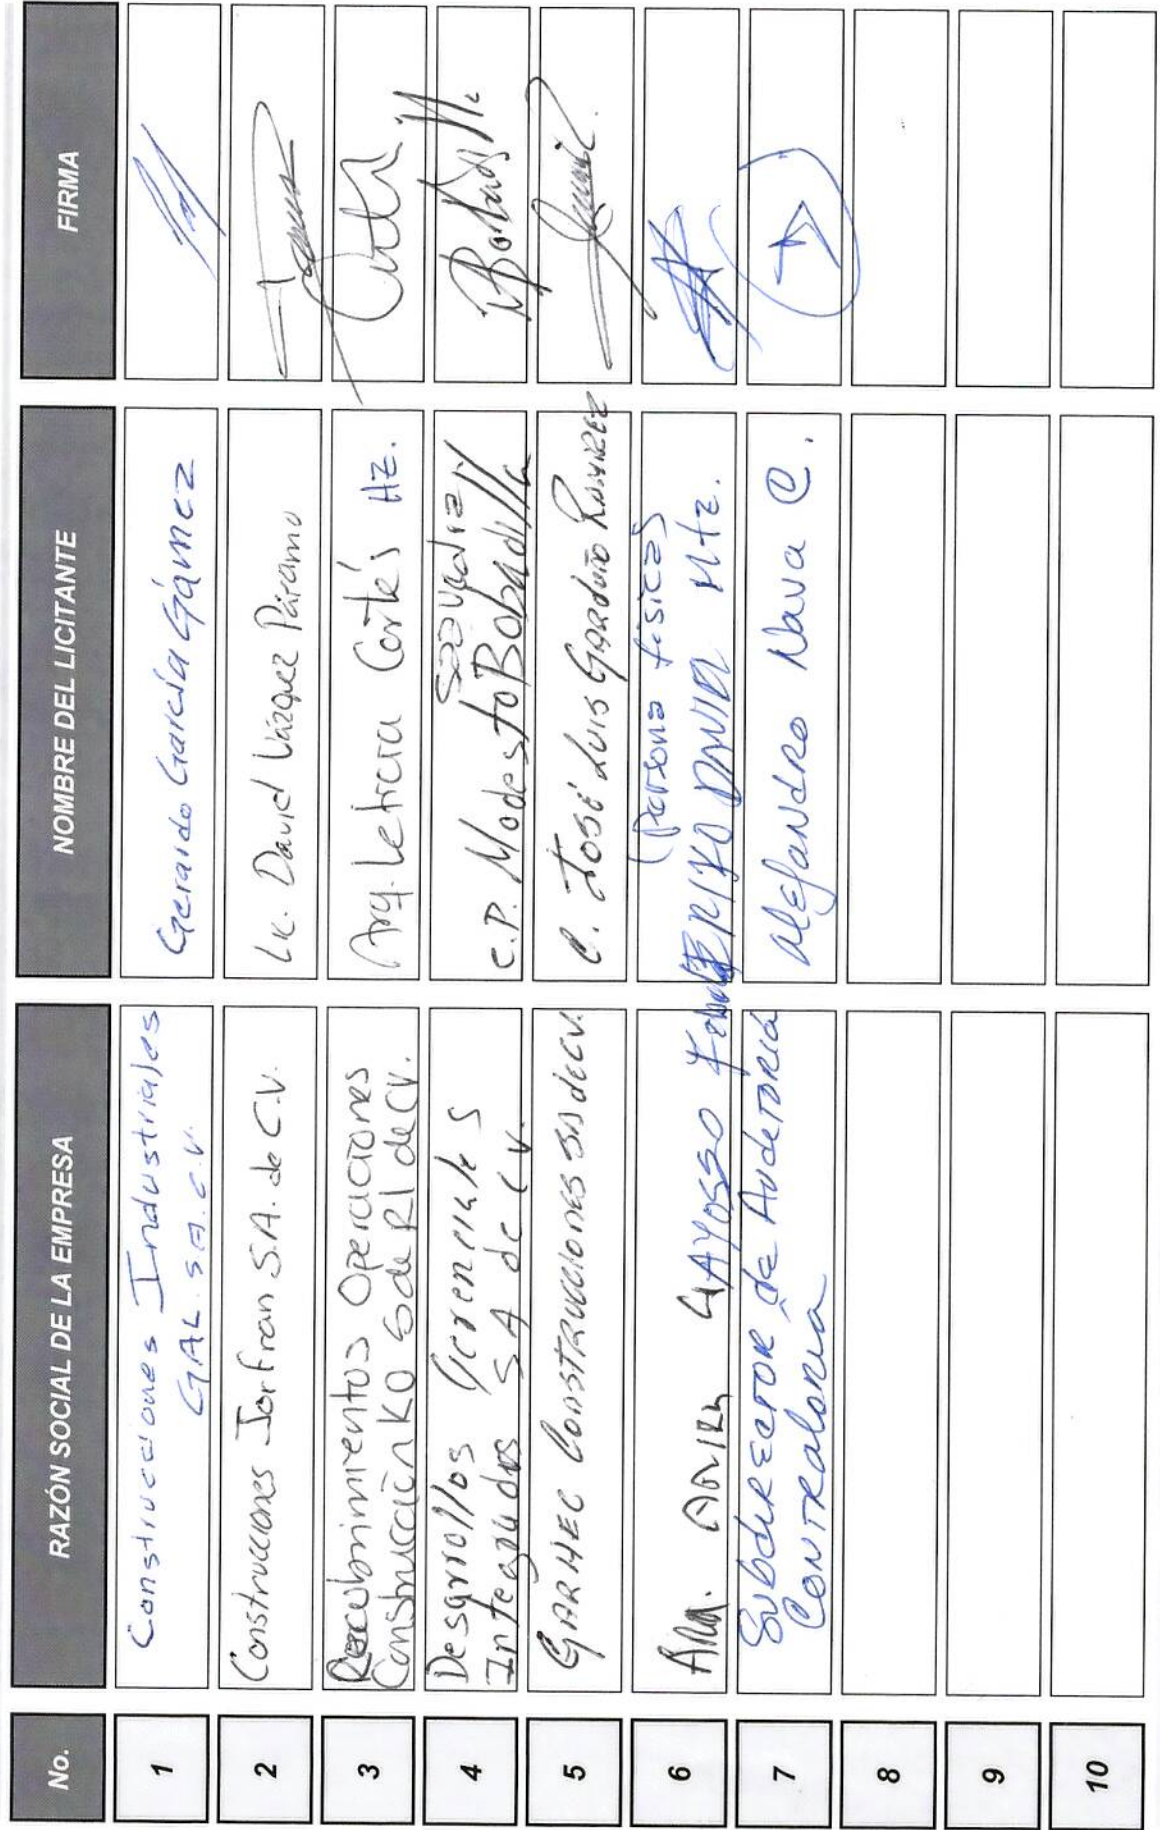 No. RAZÓN SOCIAL DE LA EMPRESA NOMBRE DEL LICITANTE FIRMA
1 Construcciones Industriales
GAL. S.A. C.V. Gerardo García Gámez
2 Construcciones Jorfran S.A. de C.V. Lic. David Vázquez Páramo
3 Recubrimientos Operaciones
Construcción KO S de RL de CV. Arq. Leticia Cortés Hz.
4 Desarrollos Gerenciales
Integrados S A de C.V. Saavedra
C.P. Modesto Bobadilla
5 GARHEC CONSTRUCCIONES SA de CV. C. José Luis Garduño Ramírez
6 (persona física)
DAVID Mtz.
7 Subdirector de Auditoría
Contraloria Alejandro Nava C.
8
9
10